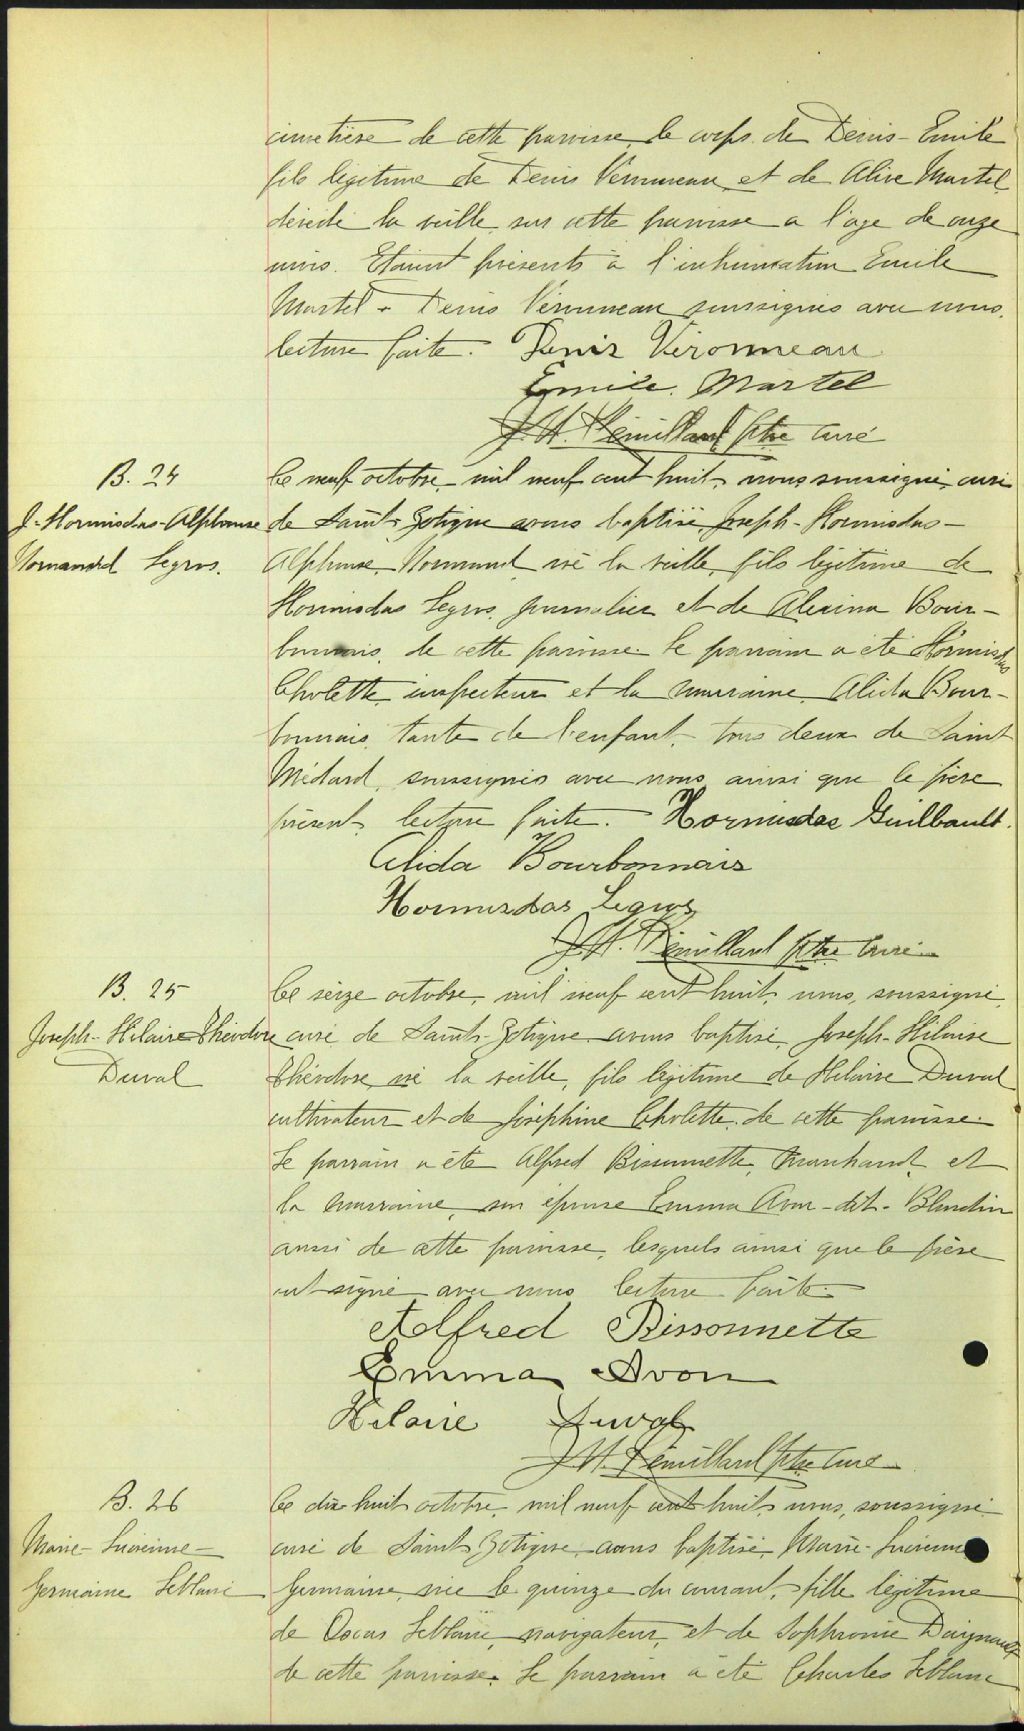 cimetière de cette paroisse le corps de Denis-Emile
fils légitime de Denis Véronneau et de Alice Martel
décédé la veille sur cette paroisse a l'age de onze
mois. Etaient présents à l'inhumation Emile
Martel & Denis Véronneau soussignés avec nous.
lecture faite. Denis Véronneau
Emile Martel
J.H. Rémillard ptre curé
B. 24
J-Hormisdas-Alphonse
Normand Legros.
Ce neuf octobre, mil neuf cent huit, nous soussigné, curé
de Saint-Zotique avons baptisé Joseph-Hormisdas-
Alphonse, Normand né la veille, fils légitime de
Hormisdas Legros, journalier et de Alexina Bour-
bonnais, de cette paroisse. Le parrain a été Hormisdas
Cholette, inspecteur et la marraine, Alida Bour-
bonnais, tante de l'enfant, tous deux de Saint
Médard, soussignés avec nous ainsi que le père
présent, lecture faite. Hormisdas Guilbault.
Alida Bourbonnais
Hormisdas Legros
J.H. Rémillard ptre curé
B. 25
Joseph-Hilaire-Théodore
Duval
Ce seize octobre, mil neuf cent huit, nous, soussigné,
curé de Saint-Zotique avons baptisé, Joseph-Hilaire
Théodore né la veille, fils légitime de Hilaire Duval
cultivateur et de Joséphine Cholette, de cette paroisse.
Le parrain a été Alfred Bissonnette, marchand, et
la marraine, son épouse Emma Avon-dit-Blondin
aussi de cette paroisse, lesquels ainsi que le père
ont signé avec nous lecture faite.
Alfred Bissonnette
Emma Avon
Hilaire Duval
J.H. Rémillard ptre curé
B. 26
Marie-Lucienne-
Germaine Leblanc
Ce dix-huit octobre, mil neuf cent huit, nous, soussigné
curé de Saint Zotique, avons baptisé, Marie-Lucienne
Germaine, née le quinze du courant, fille légitime
de Oscar Leblanc, navigateur, et de Sophronie Daignault
de cette paroisse. Le parrain a été Charles Leblanc